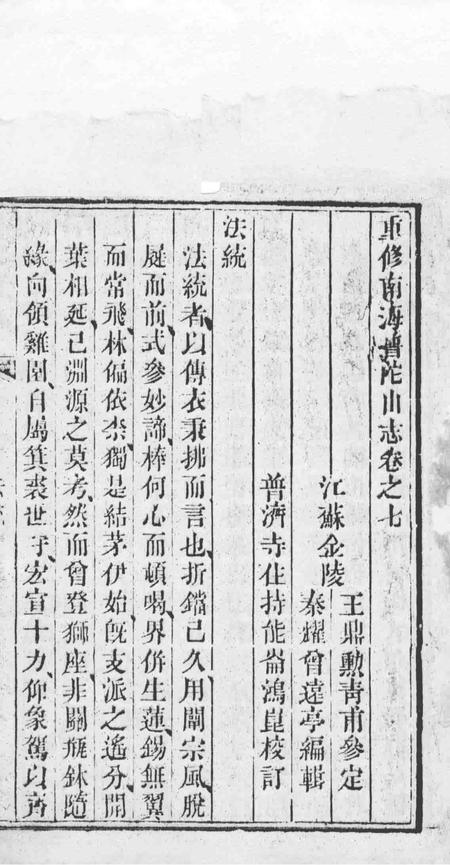 重修南海普陀山志卷之七
王鼎勲靑甫參定
江蘇金陵
秦耀曾遠亭編輯
普濟寺住持能崙鴻崑校訂
法統
法統者以傳衣秉拂而言也折鐺已久用闡宗風脫
屣而前式參妙諦棒何心而頓喝界併生蓮錫無翼
而常飛林偏依柰獨是結茅伊始旣支派之遙分開
葉相延已淵源之莫考然而曾登獅座非關瓶鉢隨
緣向領雞園自屬箕裘世守宏宣十力仰象駕以齊